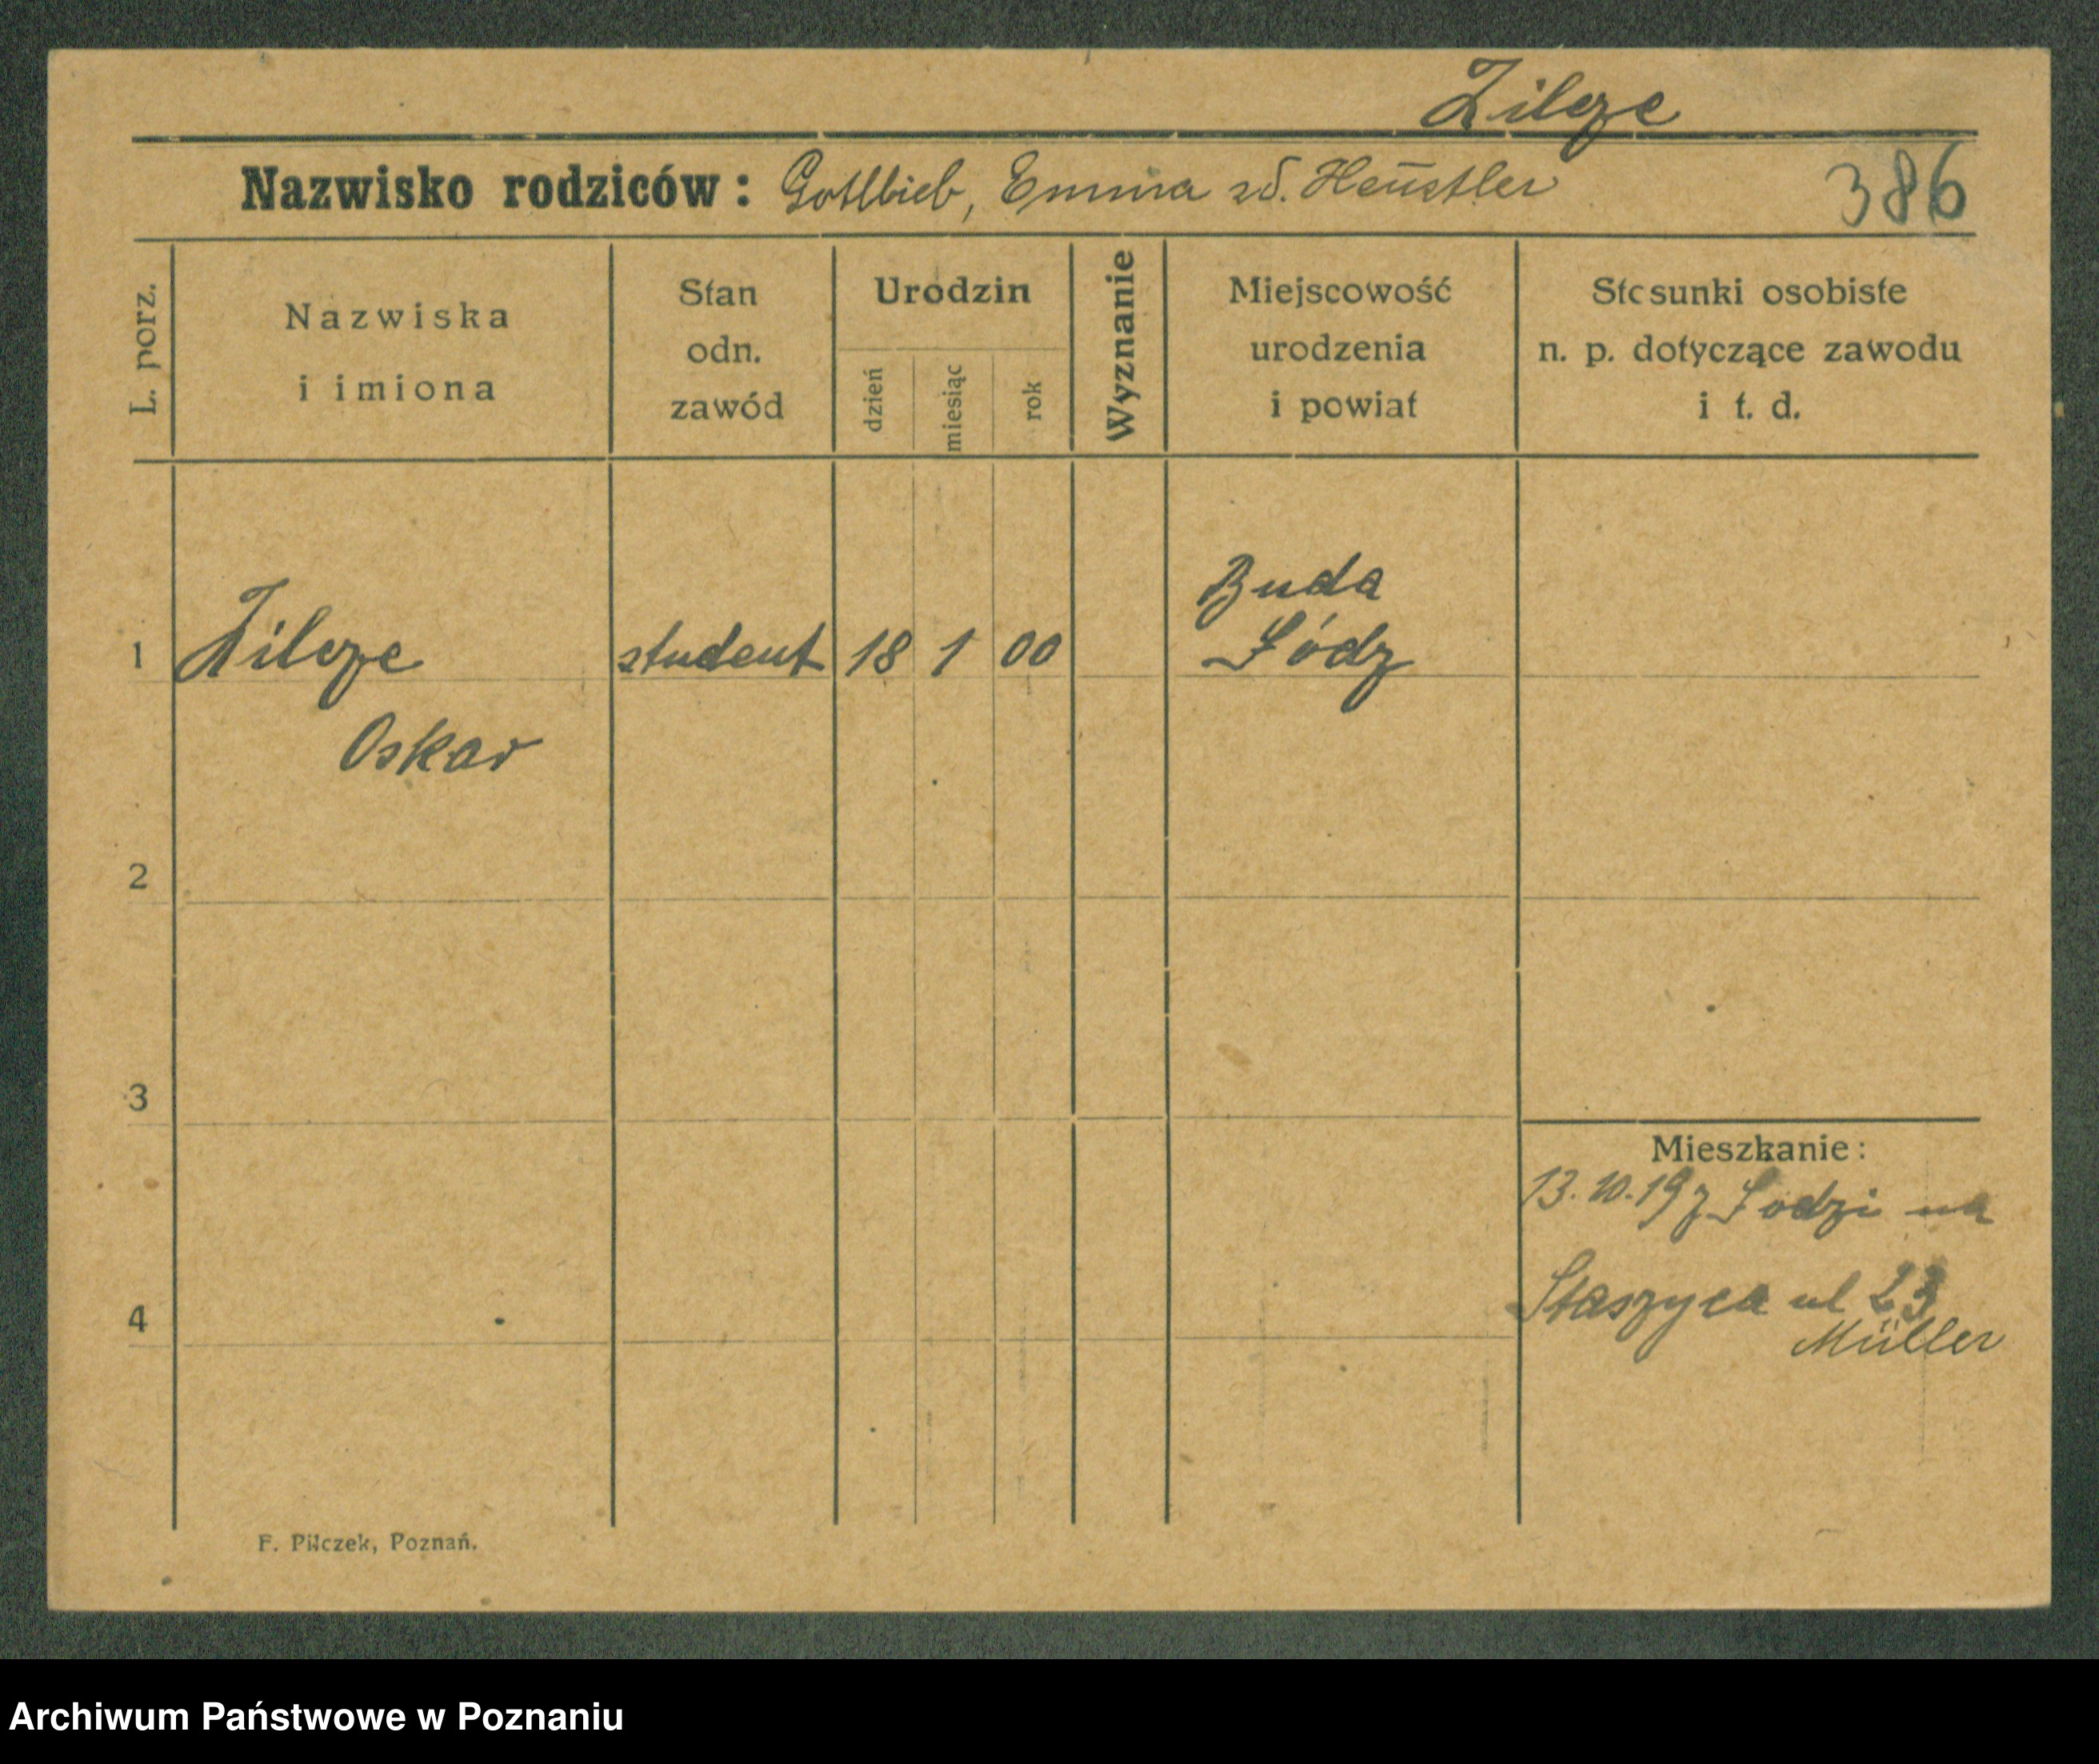 Zilcze
Nazwisko rodziców: Gottlieb, Emma zd. Heustler
386
L. porz.
Nazwiska
i imiona
Stan
odn.
zawód
Urodzin
dzień
miesiąc
rok
Wyznanie
Miejscowość
urodzenia
i powiat
Stosunki osobiste
n. p. dotyczące zawodu
i t. d.
1 Zilcze student 18 1 00 Buda
Łódz
Oskar
2
3
4
Mieszkanie:
13.10.19 z Łodzi na
Staszyca ul 23
Müller
F. Pilczek, Poznań.
Archiwum Państwowe w Poznaniu